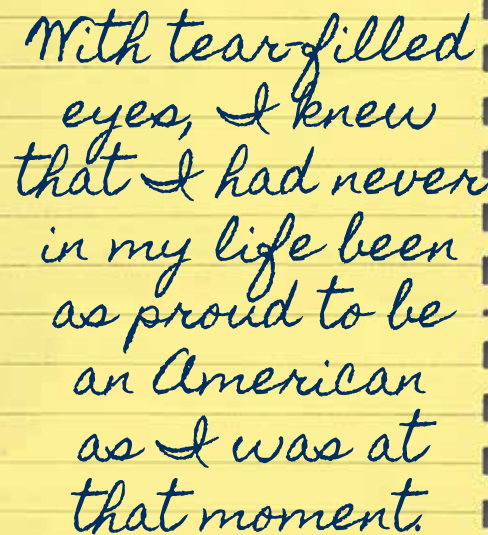 With tear-filled
eyes, I knew
that I had never
in my life been
as proud to be
an American
as I was at
that moment.